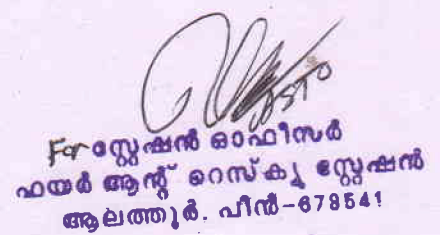 ASTO
For സ്റ്റേഷൻ ഓഫീസർ
ഫയർ ആന്റ് റെസ്ക്യൂ സ്റ്റേഷൻ
ആലത്തൂർ. പിൻ-678541